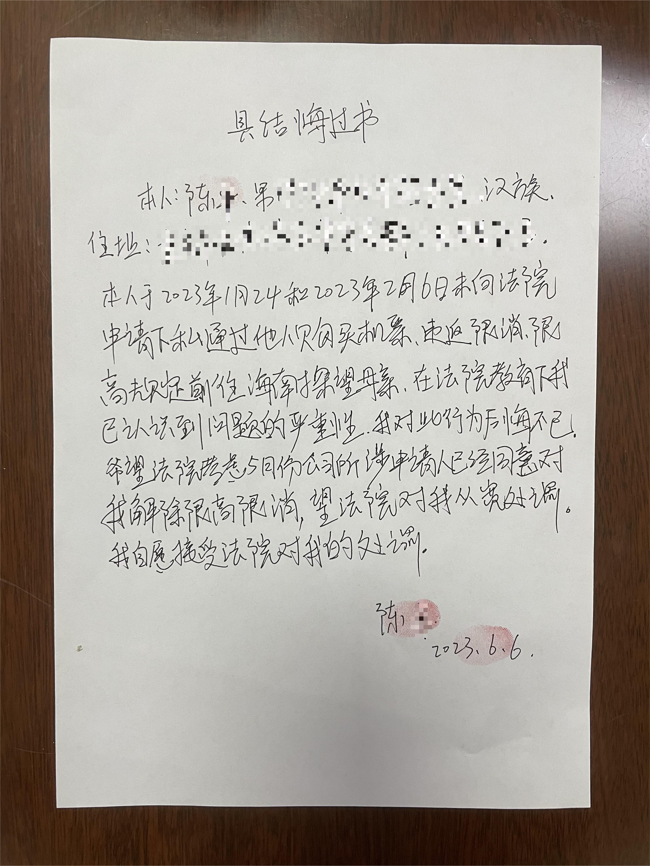 具结悔过书
本人:陈 、男 汉族、
住址: .
本人于2023年1月24和2023年2月6日未向法院
申请下私通过他人购买机票、违返限消、限
高规定前往海南探望母亲、在法院教育下我
已认识到问题的严重性、我对此行为后悔不已.
希望法院考虑5月份公司所涉申请人已经同意对
我解除限高限消,望法院对我从宽处罚。
我自愿接受法院对我的处罚。
陈 .
2023.6.6.